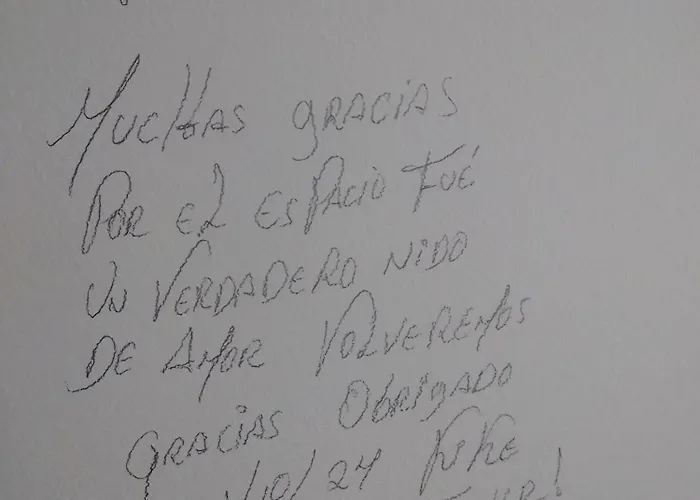 Muchas gracias
Por el espacio Fué
Un verdadero nido
De amor Volveremos
Gracias Obrigado
/10/24 Kike